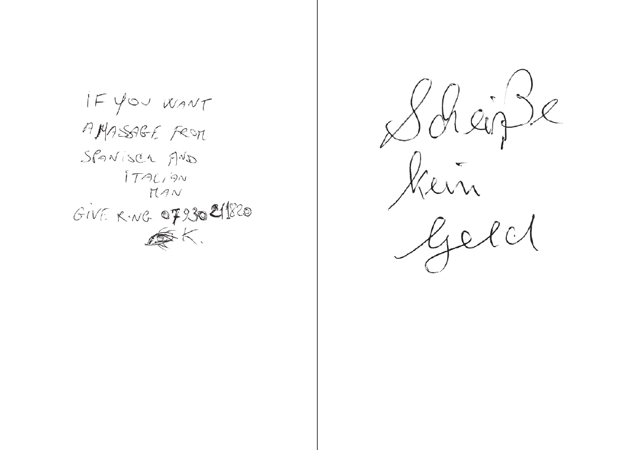 IF YOU WANT
A MASSAGE FROM
SPANISCH AND
ITALIAN
MAN
GIVE RING 07930211820
K.
Scheiße
kein
Geld